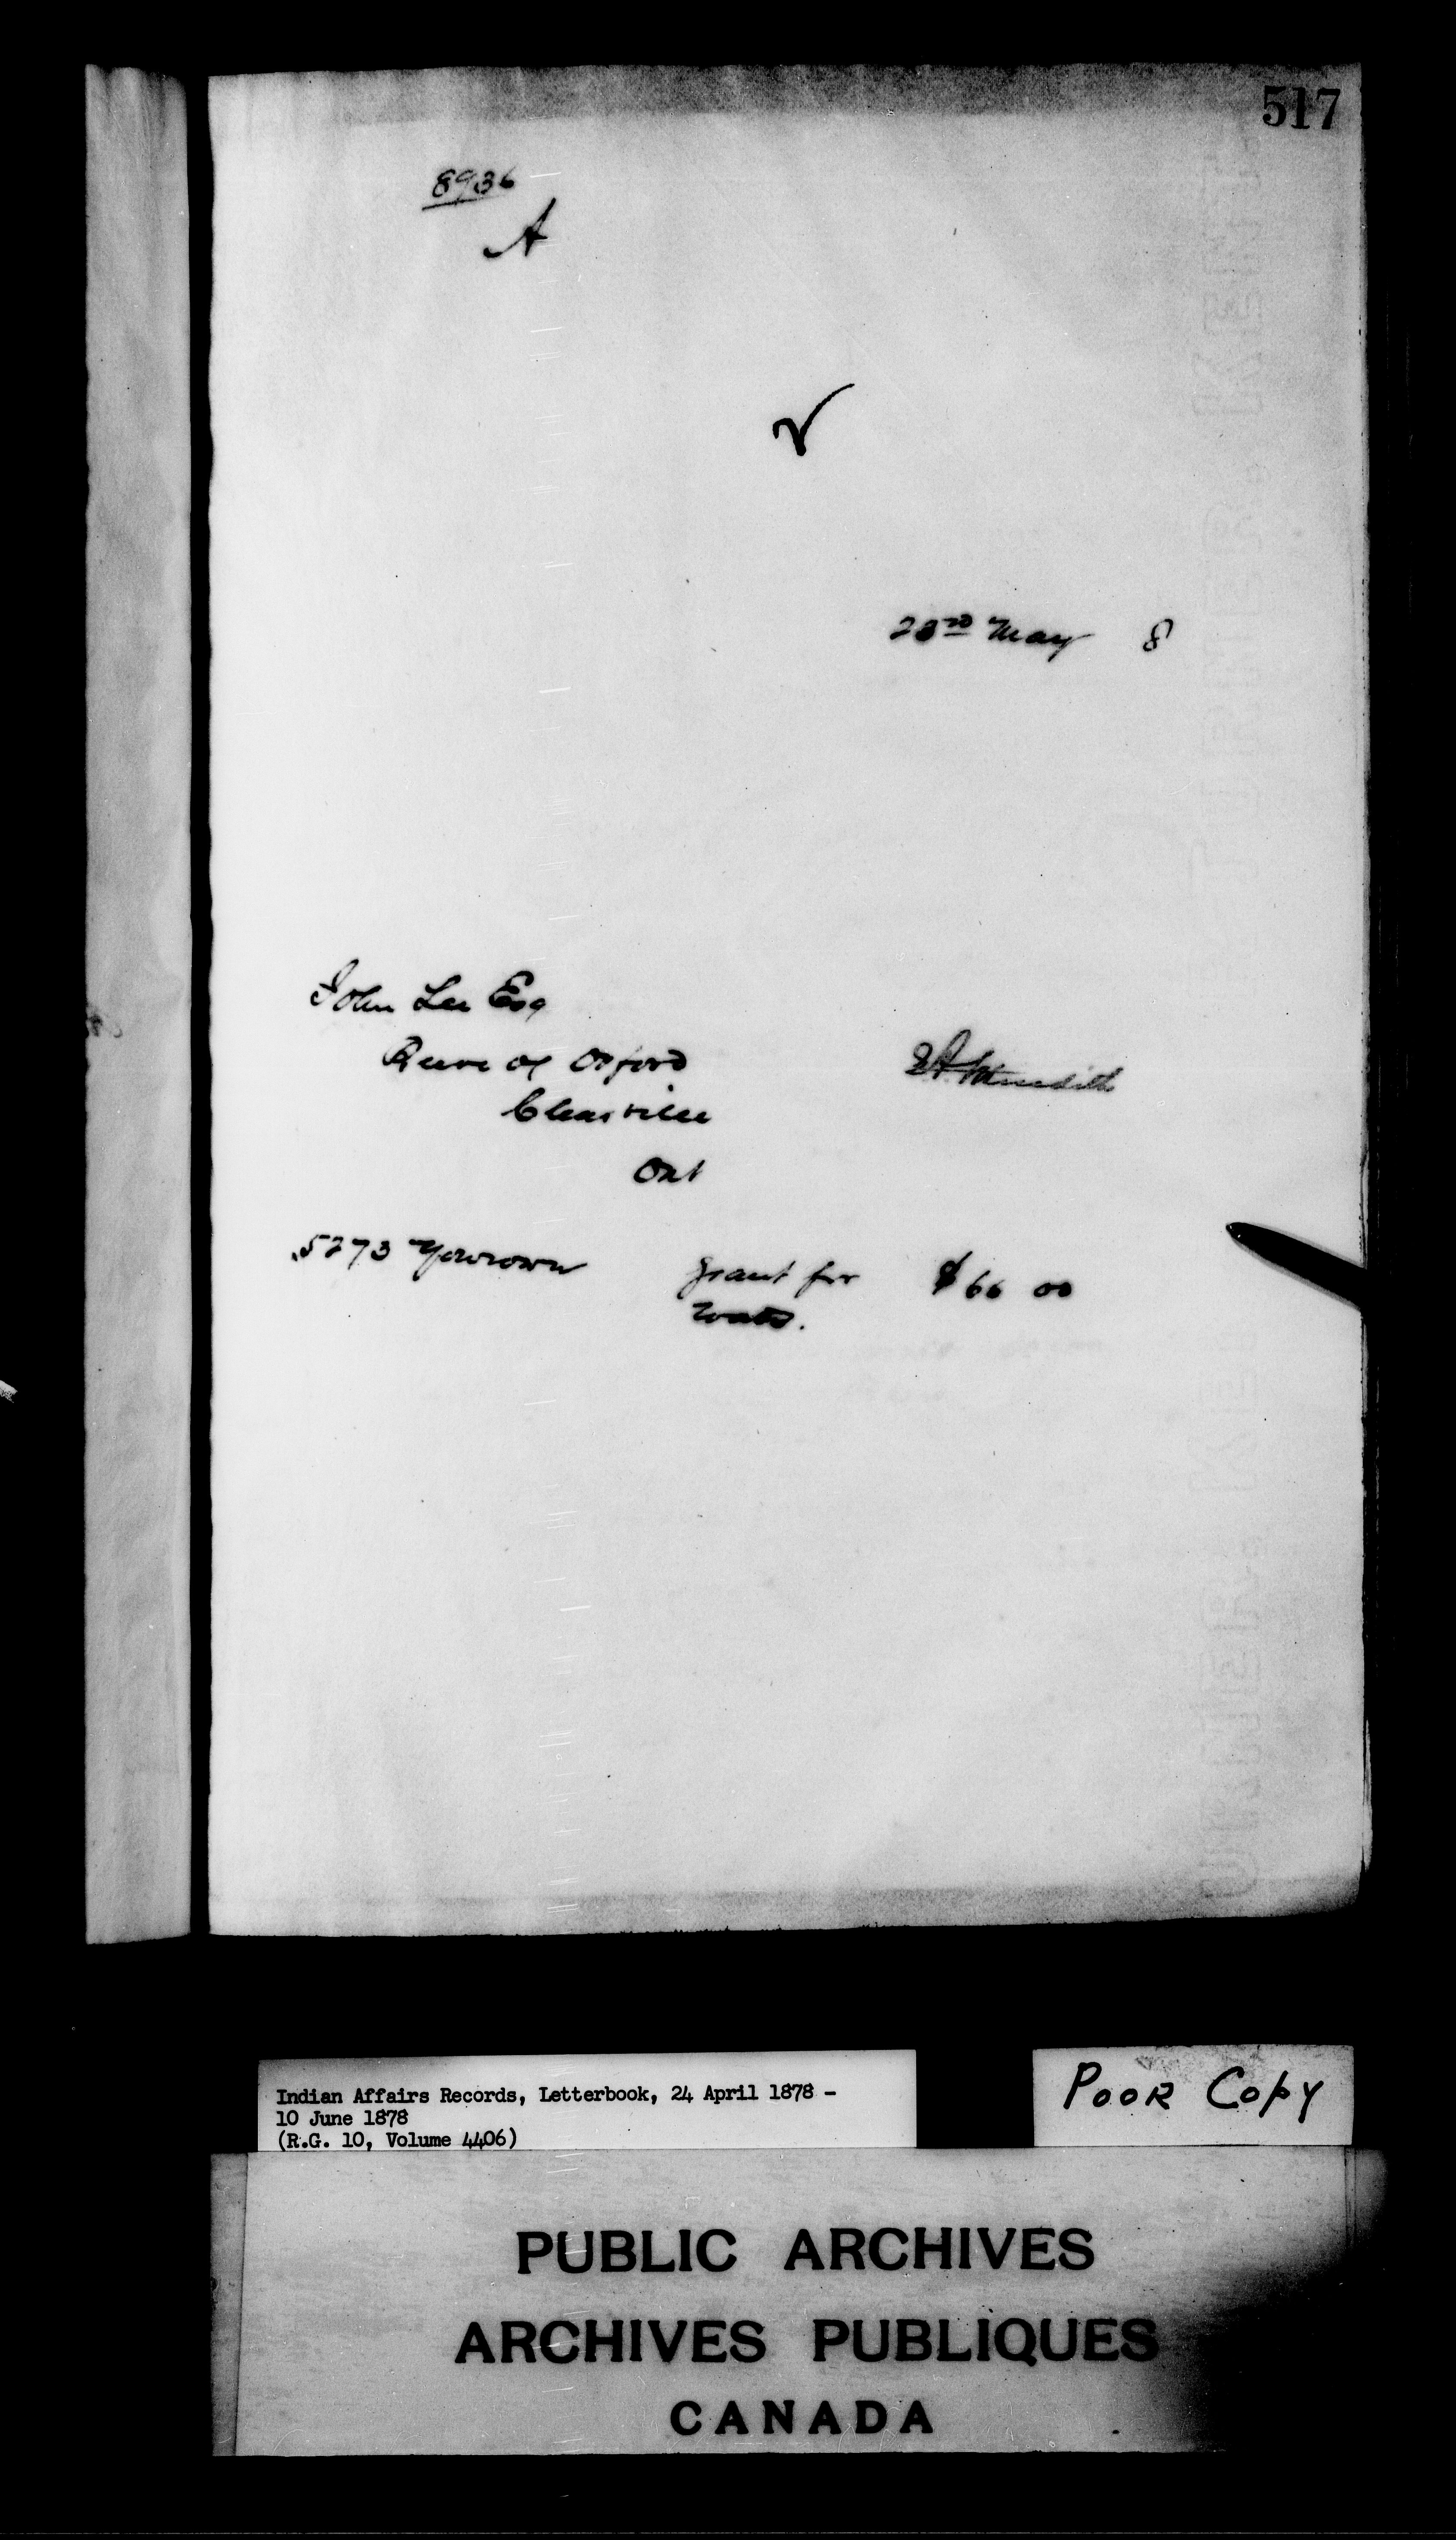 517
8936
A
23rd May 8
John Lee Esq
Reeve of Orford
Clearville
Ont
E A Meredith
5273 Yourown
Grant for $66 00
roads.
Indian Affairs Records, Letterbook, 24 April 1878 -
10 June 1878
(R.G. 10, Volume 4406)
Poor Copy
PUBLIC ARCHIVES
ARCHIVES PUBLIQUES
CANADA